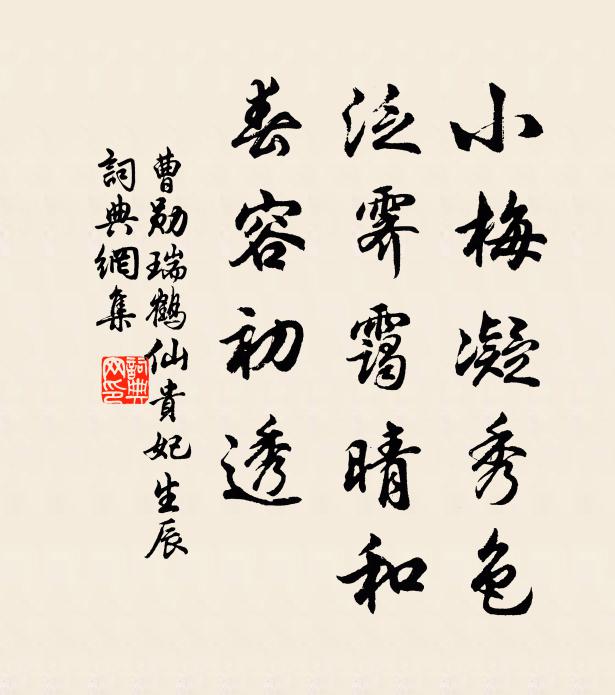 小梅凝秀色
泛霁霭晴和
春容初透
曹勋瑞鶴仙貴妃生辰
詞典網集
詞典网印